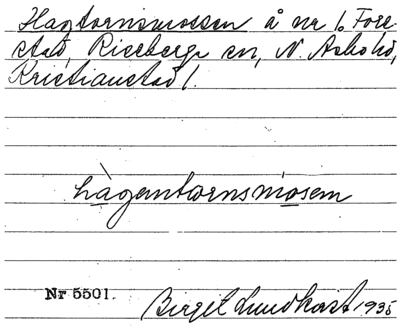 Hagtornsmossen å nr 1 Fore-
stad, Riseberga sn, N. Åsbo hd,
Kristianstad l.
hàgentornsmosem
Nr 5501.
Birgit Lundkvist 1935